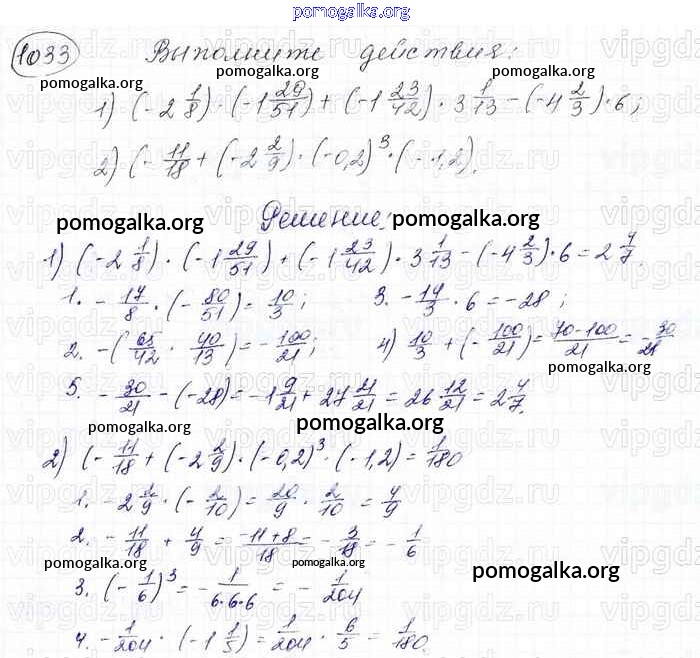 pomogalka.org
1033 Выполните действия:
pomogalka.org pomogalka.org
1) (-2 1/8) · (-1 29/51) + (-1 23/42) · 3 1/13 - (-4 2/3) · 6;
pomogalka.org pomogalka.org
2) (- 11/18 + (-2 2/9) · (-0,2)^3 · (-1,2).
pomogalka.org Решение: pomogalka.org
1) (-2 1/8) · (-1 29/51) + (-1 23/42) · 3 1/13 - (-4 2/3) · 6 = 2 4/7.
1. - 17/8 · (- 80/51) = 10/3; 3. - 14/3 · 6 = -28;
2. -(65/42 · 40/13) = - 100/21; 4) 10/3 + (- 100/21) = 70-100/21 = - 30/21
pomogalka.org
5. - 30/21 - (-28) = -1 9/21 + 27 21/21 = 26 12/21 = 2 4/7.
pomogalka.org
2) (- 11/18 + (-2 2/9) · (-0,2)^3 · (-1,2) = 1/180
1. -2 2/9 · (- 2/10) = 20/9 · 2/10 = 4/9
pomogalka.org
2. - 11/18 + 4/9 = -11+8/18 = - 3/18 = - 1/6
pomogalka.org pomogalka.org pomogalka.org
3. (- 1/6)^3 = - 1/6·6·6 = - 1/204
4. - 1/204 · (-1 1/5) = 1/204 · 6/5 = 1/180.
pomogalka.org pomogalka.org